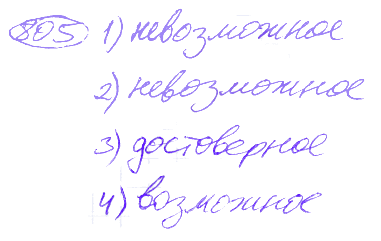 805 1) невозможное
2) невозможное
3) достоверное
4) возможное